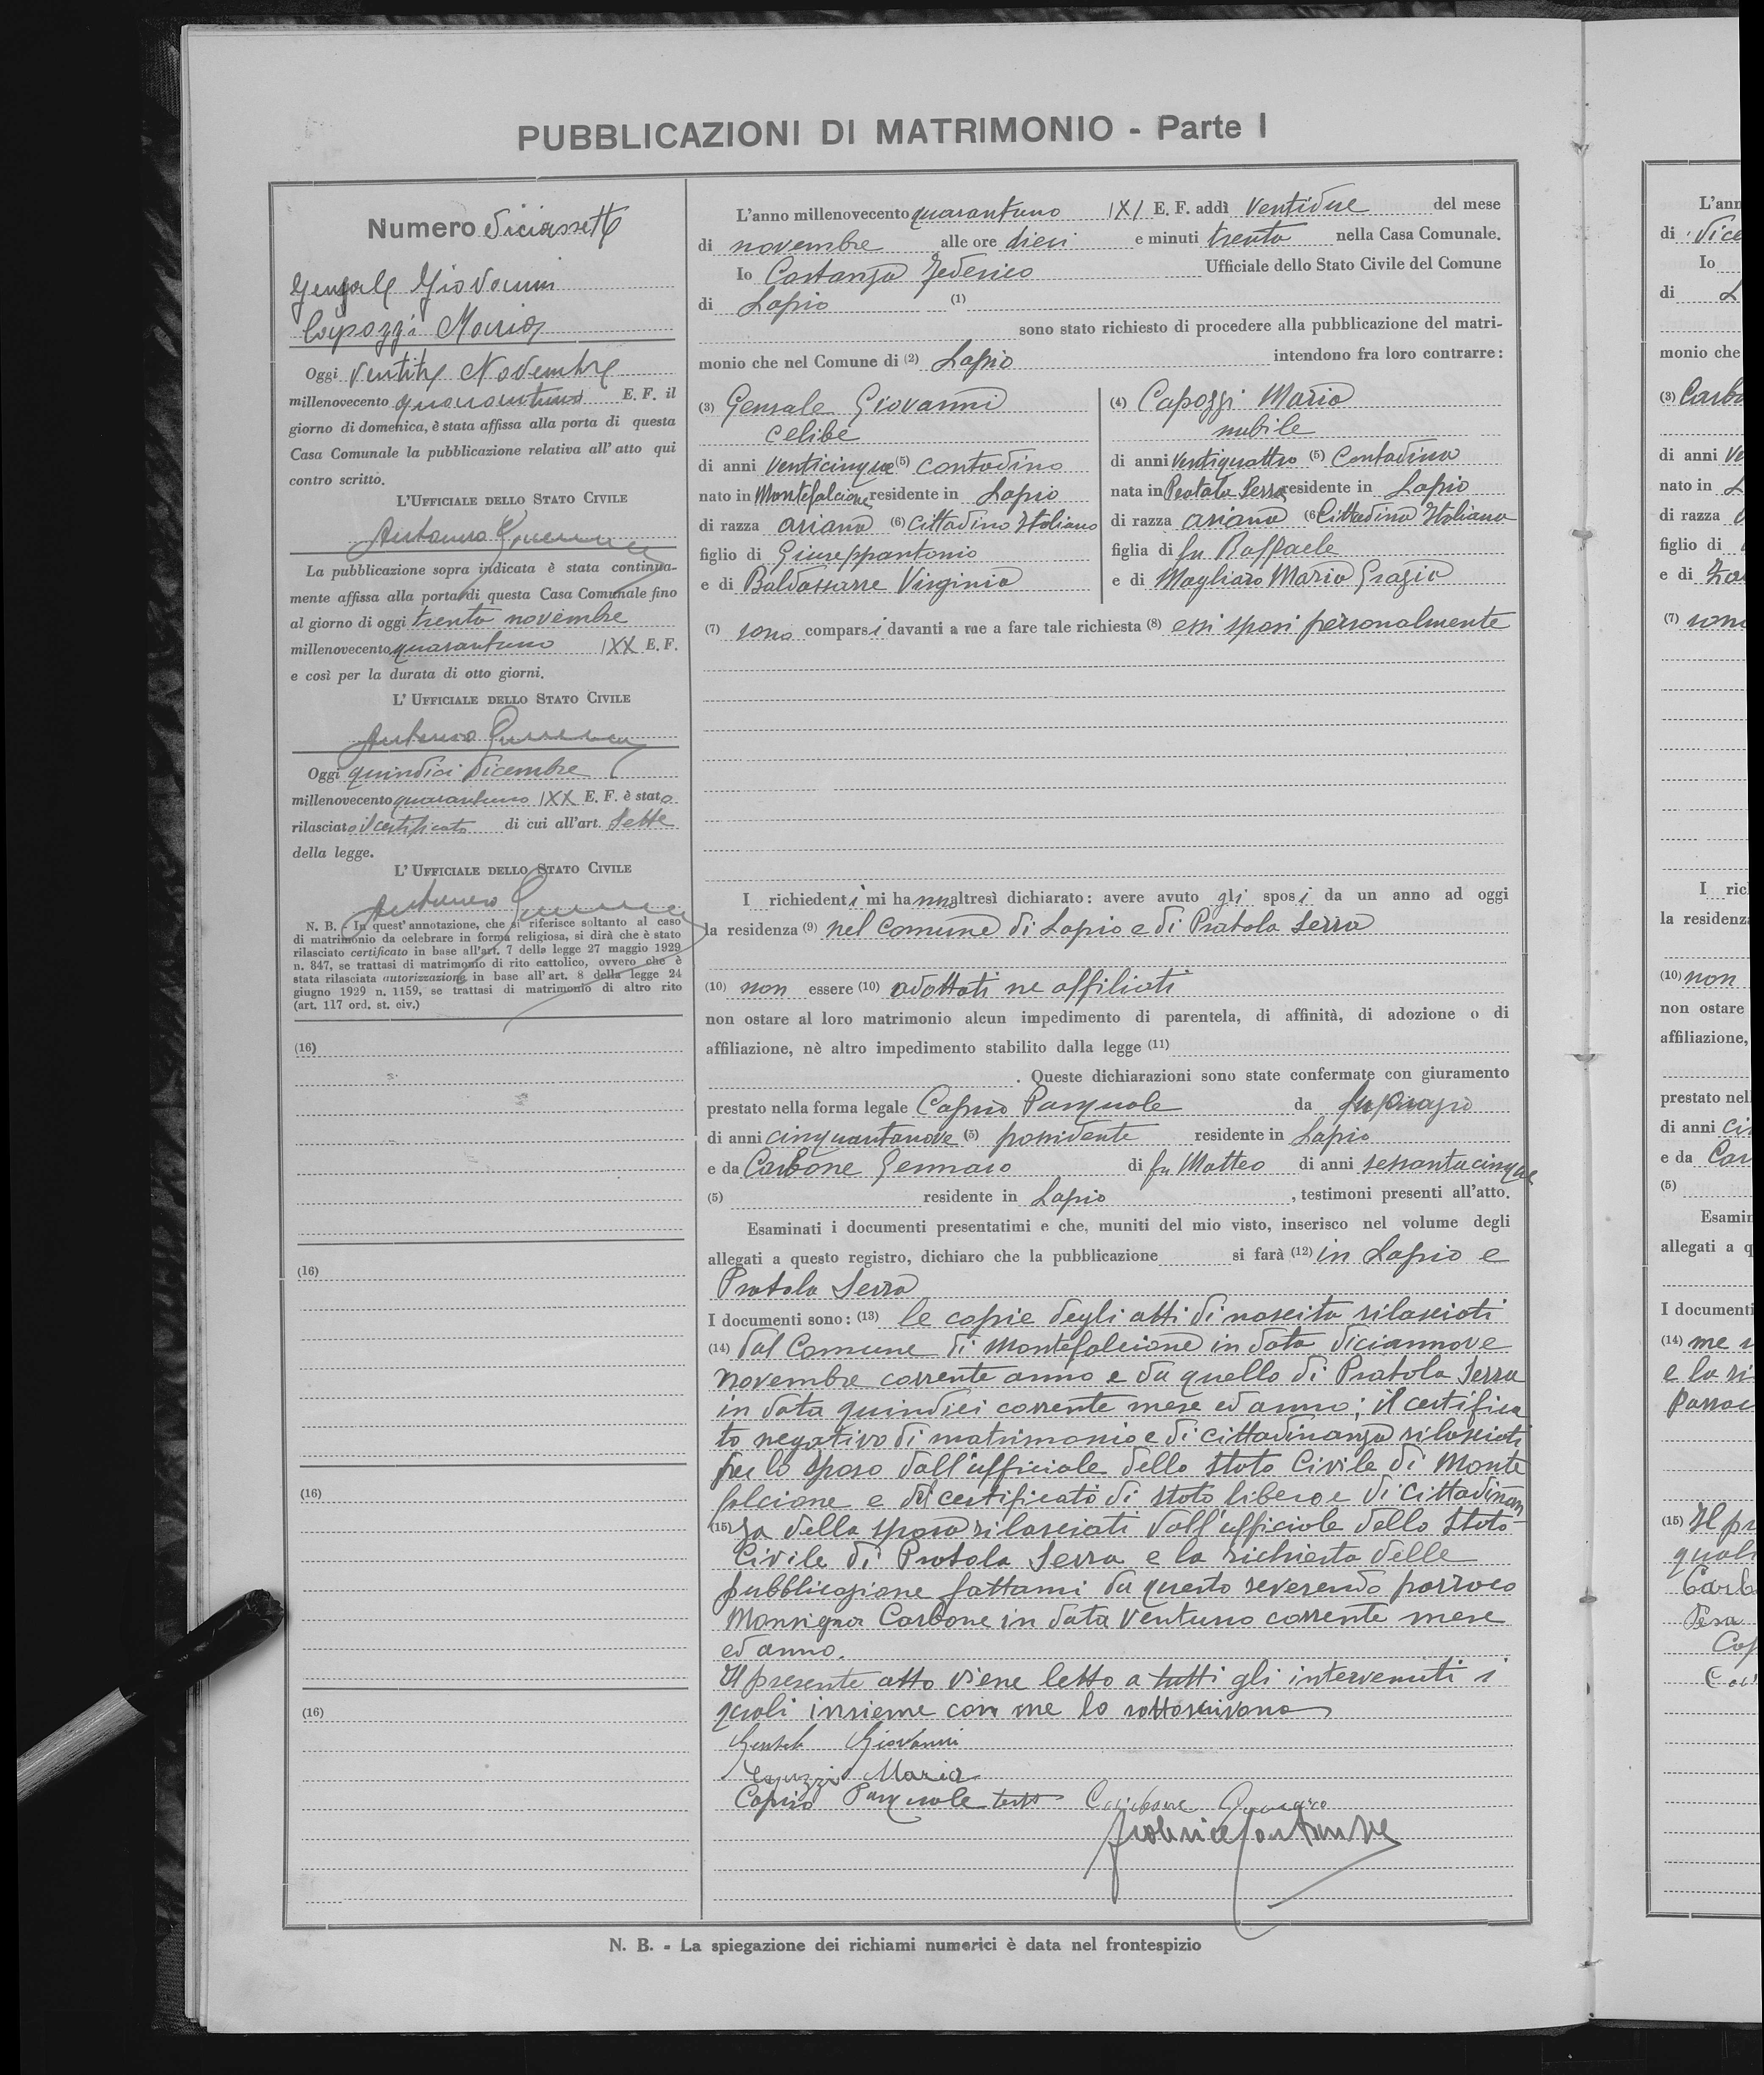 PUBBLICAZIONI DI MATRIMONIO - Parte I
Numero diciassette
Gensale Giovanni
Capozzi Maria
Oggi ventitre Novembre
millenovecento quarantuno E. F. il
giorno di domenica, è stata affissa alla porta di questa
Casa Comunale la pubblicazione relativa all'atto qui
contro scritto.
L'UFFICIALE DELLO STATO CIVILE
Antonio
La pubblicazione sopra indicata è stata continua-
mente affissa alla porta di questa Casa Comunale fino
al giorno di oggi trenta novembre
millenovecento quarantuno IXX E. F.
e così per la durata di otto giorni.
L'UFFICIALE DELLO STATO CIVILE
Antonio
Oggi quindici dicembre
millenovecento quarantuno IXX E. F. è stato
rilasciato il certificato di cui all'art. sette
della legge.
L'UFFICIALE DELLO STATO CIVILE
Antonio
N. B. - In quest'annotazione, che si riferisce soltanto al caso
di matrimonio da celebrare in forma religiosa, si dirà che è stato
rilasciato certificato in base all'art. 7 della legge 27 maggio 1929
n. 847, se trattasi di matrimonio di rito cattolico, ovvero che è
stata rilasciata autorizzazione in base all'art. 8 della legge 24
giugno 1929 n. 1159, se trattasi di matrimonio di altro rito
(art. 117 ord. st. civ.)
(16)
(16)
(16)
(16)
L'anno millenovecento quarantuno IXI E. F. addì ventidue del mese
di novembre alle ore dieci e minuti trenta nella Casa Comunale.
Io Costanza Federico Ufficiale dello Stato Civile del Comune
di Lapio (1)
sono stato richiesto di procedere alla pubblicazione del matri-
monio che nel Comune di (2) Lapio intendono fra loro contrarre:
(3) Gensale Giovanni
celibe
di anni venticinque (5) contadino
nato in Montefalcione residente in Lapio
di razza ariana (6) cittadino Italiano
figlio di Giuseppantonio
e di Baldassarre Virginia
(4) Capozzi Maria
nubile
di anni ventiquattro (5) Contadina
nata in Pratola Serra residente in Lapio
di razza ariana (6 Cittadina Italiana
figlia di fu Raffaele
e di Magliaro Maria Grazia
(7) sono comparsi davanti a me a fare tale richiesta (8) essi sposi personalmente
I richiedenti mi hanno altresì dichiarato: avere avuto gli sposi da un anno ad oggi
la residenza (9) nel Comune di Lapio e di Pratola Serra
(10) non essere (10) adottati ne affiliati
non ostare al loro matrimonio alcun impedimento di parentela, di affinità, di adozione o di
affiliazione, nè altro impedimento stabilito dalla legge (11)
. Queste dichiarazioni sono state confermate con giuramento
prestato nella forma legale Caprio Pasquale da
di anni cinquantanove (5) possidente residente in Lapio
e da Carbone Gennaro di fu Matteo di anni sessantacinque
(5) residente in Lapio , testimoni presenti all'atto.
Esaminati i documenti presentatimi e che, muniti del mio visto, inserisco nel volume degli
allegati a questo registro, dichiaro che la pubblicazione si farà (12) in Lapio e
Pratola Serra
I documenti sono: (13) le copie degli atti di nascita rilasciati
(14) dal Comune di Montefalcione in data diciannove
novembre corrente anno e da quello di Pratola Serra
in data quindici corrente mese ed anno; il certifica
to negativo di matrimonio e di cittadinanza rilasciati
per lo sposo dall'ufficiale dello stato Civile di Monte
falcione e del certificato di stato libero e di cittadinan
(15) za della sposa rilasciati dall'ufficiale dello stato
Civile di Pratola Serra e la richiesta delle
pubblicazione fattami da questo reverendo parroco
Monsignor Carbone in data ventuno corrente mese
ed anno.
Il presente atto viene letto a tutti gli intervenuti i
quali insieme con me lo sottoscrivono
Gensale Giovanni
Capozzi Maria
Caprio Pasquale teste Carbone Gennaro
Federico Costanza
N. B. - La spiegazione dei richiami numerici è data nel frontespizio
L'ann
di
Io
di L
monio che
(3) Carb
di anni ve
nato in L
di razza
figlio di
e di
(7) sono
I ric
la residenza
(10) non
non ostare
affiliazione,
prestato nel
di anni ci
e da Car
(5)
Esamin
allegati a q
I documenti
(14) me
e la ri
Parroc
(15) Il pr
quali
Carb